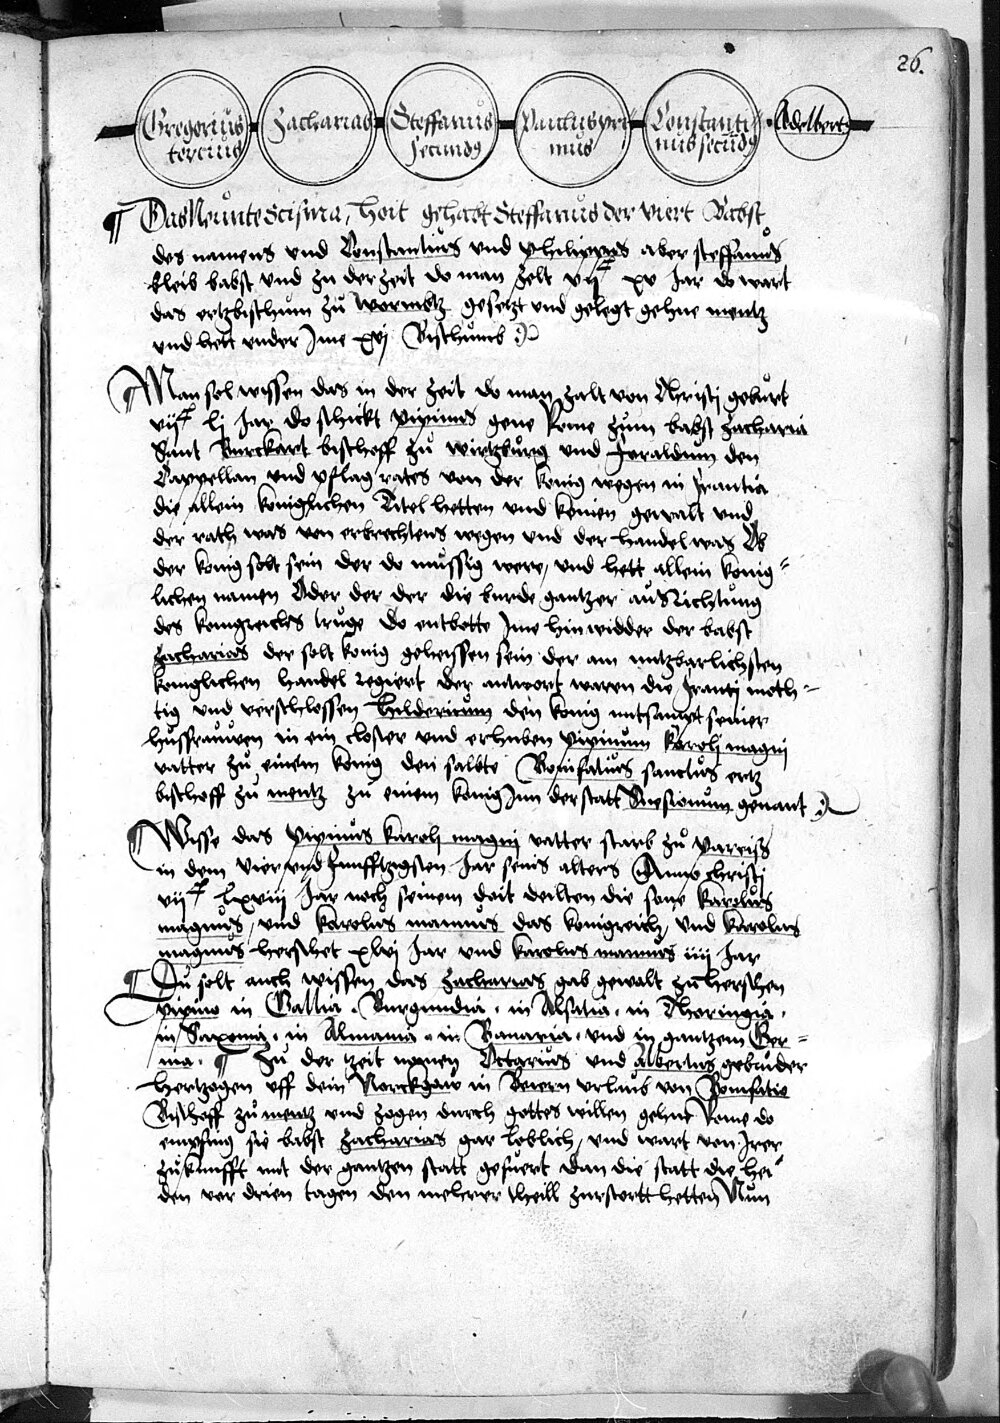 26.
Gregorius tercius
Zacharias
Steffanus secundus
Paulus primus
Constantinus secundus
Adelbert
Das Neunte Scisma, hoit gehabt Steffanus der viert Babst
des namens vnd Constantinus vnd philippus aber steffanus
bleib babst vnd zu der zeit do man zelt vijc xv Jar do wart
das ertzbischum zu wormbtz gesetzt vnd gelegt gehne mentz
vnd hett vnder Jme xvj Bisthumb
Man sol wissen das in der zeit do man zalt von Christi geburt
vijc lj Jar do schickt pipinus gene Rome zum babst zacharia
Sant Burckart bischoff zu wirtzburg vnd fvraldum den
Cappellan vnd pflag rates von der konig wegen in francia
die allein koniglichen Titel hetten vnd keinen gewalt vnd
der rath was von erbrechtens wegen vnd der handel was Ob
der konig solt sein der do mussig were, vnd hett allein konig-
lichen namen Oder der der die burde gantzer ausrichtung
des konigreichs truge do entbotte Jme hinwidder der babst
zacharias der solt konig geheissen sein der am nutzbarlichsten
koniglichen handel regiert der antwort waren die franci moth-
tig vnd verschlossen hildericum den konig mitsampt seiner
hussfrauwen in ein closter vnd erhuben pipinum karolj magni
vatter zu einem konig den salbte Bonifatius sanctus ertz
bischoff zu mentz zu einem konig Jnn der statt Suesionum genant
Wisse das pipinus karolj magni vatter starb zu pareiss
in dem vier vnd funfftzigsten Jar seins alters Anno christj
vijc lxviij Jar noch seinem doit deilten die sone karolus
magnus, vnd karolus mannus das konigreich, vnd karolus
magnus herschet xlvj Jar vnd karolus mannus iiij Jar
Du solt auch wissen das zacharias gab gewalt zu herschen
pipino in Gallia. Burgundia. in Alsatia. in Thoringia.
in Saxonia. in Almania. in Bauaria. vnd in gantzem Ger-
ma. Zu der tzeit namen Octarius vnd Albertus gebruder
hertzogen vff dem Norckgaw in Beiern vrlaub von Bonifatio
Bischoff zu mentz vnd zogen durch gottes willen gehne Rome do
empfing sie babst zacharias gar loblich, vnd wart von Jrer
zukunfft mit der gantzen statt gefuert dan die statt die hei-
den vor drien tagen den mehrer theill zurstortt hetten Nun